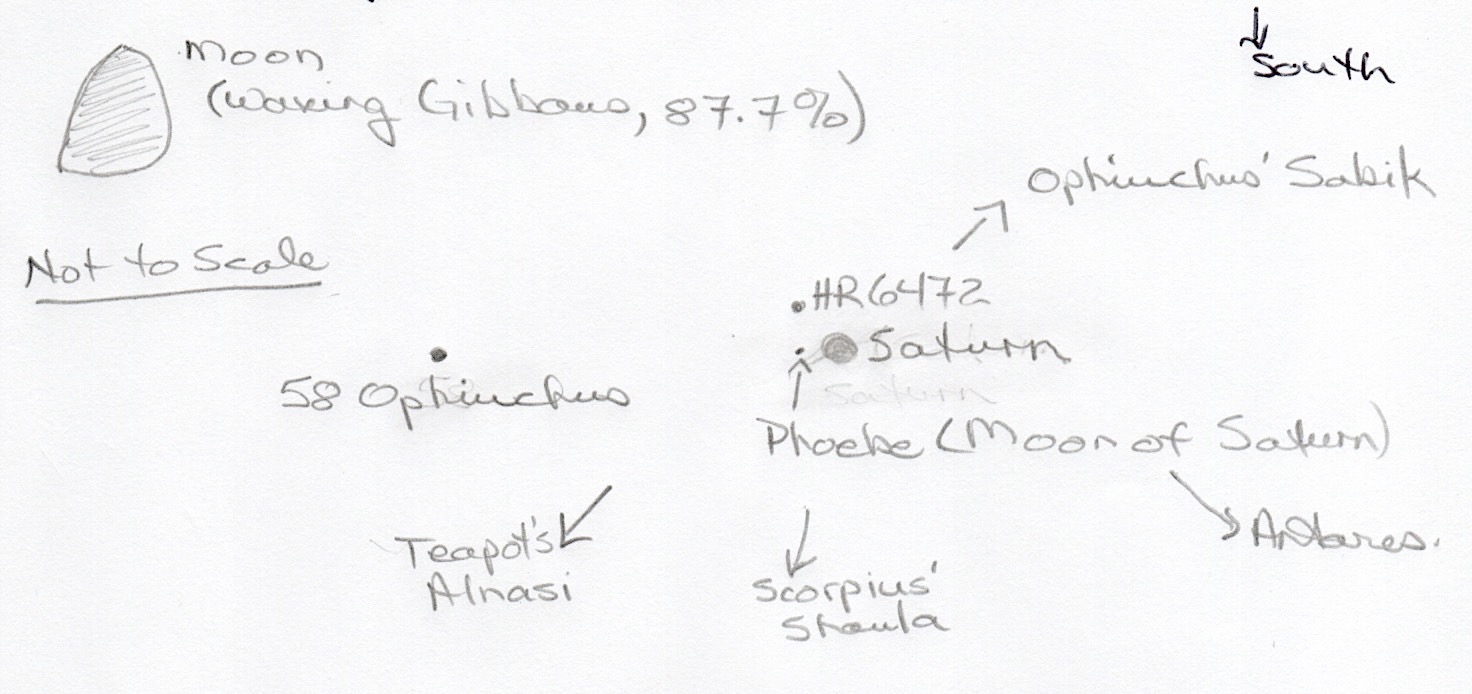 Moon
(Waxing Gibbous, 87.7%)
↓
South
Ophiuchus' Sabik
Not to Scale
HR6472
Saturn
58 Ophiuchus
Saturn
Phoebe (Moon of Saturn)
Teapot's
Alnasi
Scorpius'
Shaula
Antares.